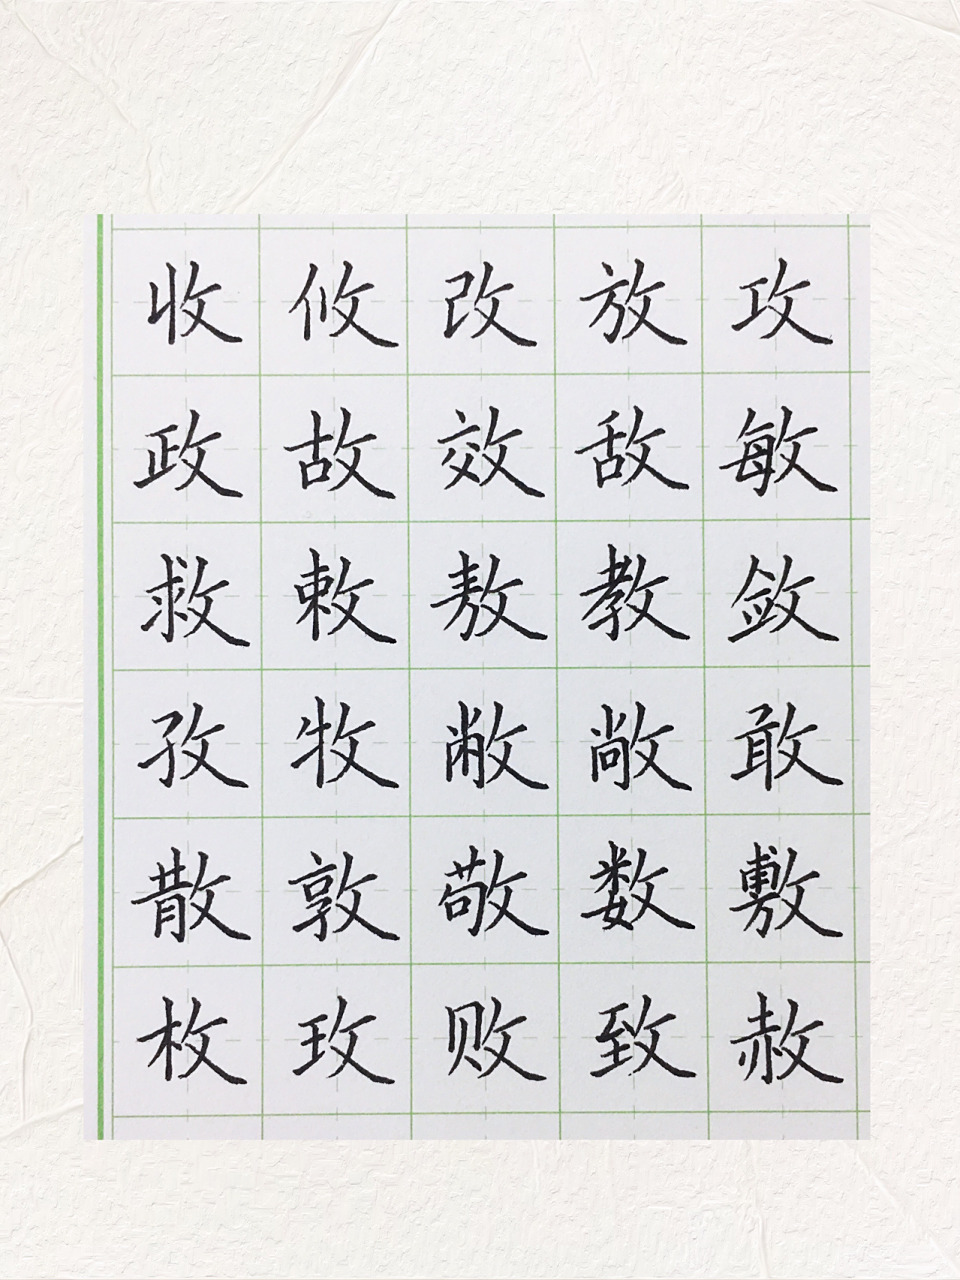 收攸改放攻
政故效敌敏
救敕敖教敛
孜牧敝敞敢
散敦敬数敷
枚玫败致赦